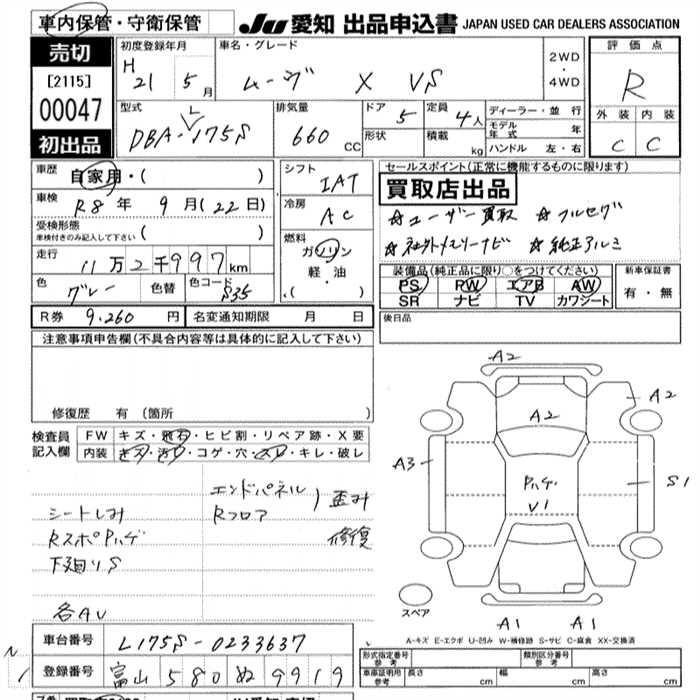 車内保管・守衛保管
JU 愛知 出品申込書 JAPAN USED CAR DEALERS ASSOCIATION
売切
[2115]
00047
初出品
初度登録年月
H 21 5月
車名・グレード
ムーヴ X VS
2WD
・
4WD
評価点
R
外装 内装
C C
型式
DBA-L175S
排気量
660 CC
ドア 5
形状
定員 4人
積載 kg
ディーラー・並行
モデル年式 年
ハンドル 左・右
車歴 自家用・( )
車検 R8年 9月(22日)
受検形態
車検付きのみ記入して下さい ( )
走行 11万2千997km
色 グレー 色替 色コード S35
シフト IAT
冷房 AC
燃料
ガソリン
軽油
・( )
セールスポイント(正常に機能するものに限ります)
買取店出品
☆ユーザー買取 ☆フルセグ
☆社外メモリーナビ ☆純正アルミ
装備品(純正品に限り○をつけてください)
PS PW エアB AW
SR ナビ TV カワシート
新車保証書
有・無
R券 9,260円 名変通知期限 月 日
後日品
注意事項申告欄(不具合内容等は具体的に記入して下さい)
修復歴 有(箇所 )
検査員
記入欄
FW キズ・飛石・ヒビ割・リペア跡・X要
内装 キズ・汚レ・コゲ・穴・スレ・キレ・破レ
エンドパネル
Rフロア
歪み
修復
シートしみ
RスポPハゲ
下廻りS
各AU
A2
A2
A2
A3
Pハゲ
V1
S1
スペア
A1 A1
A-キズ E-エクボ U-凹み W-補修跡 S-サビ C-腐食 XX-交換済
車台番号 L175S-0233637
登録番号 富山 580 ぬ 9919
形式指定番号
参考
類別区分番号
参考
車庫証明用
参考
長さ cm 幅 cm 高さ cm